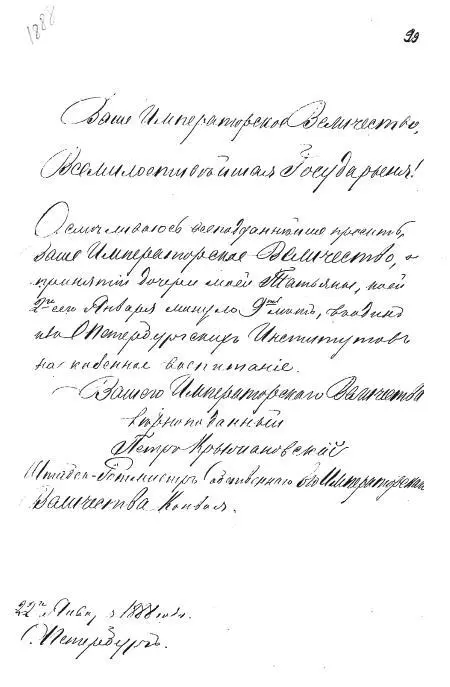 1888
99
Ваше Императорское Величество,
Всемилостивѣйшая Государыня!
Осмѣливаюсь всеподданнѣйше просить,
Ваше Императорское Величество, о
принятіи дочери моей Татьяны, коей
2го сего Января минуло 9ть лѣтъ, въ одинъ
изъ С Петербургскихъ Институтовъ
на казенное воспитаніе.
Вашего Императорскаго Величества
вѣрноподданный
Петръ Крыжановскій
Штабсъ-Ротмистръ Собственнаго Его Императорскаго
Величества Конвоя.
22го Янв. 1888 года.
С. Петербургъ.